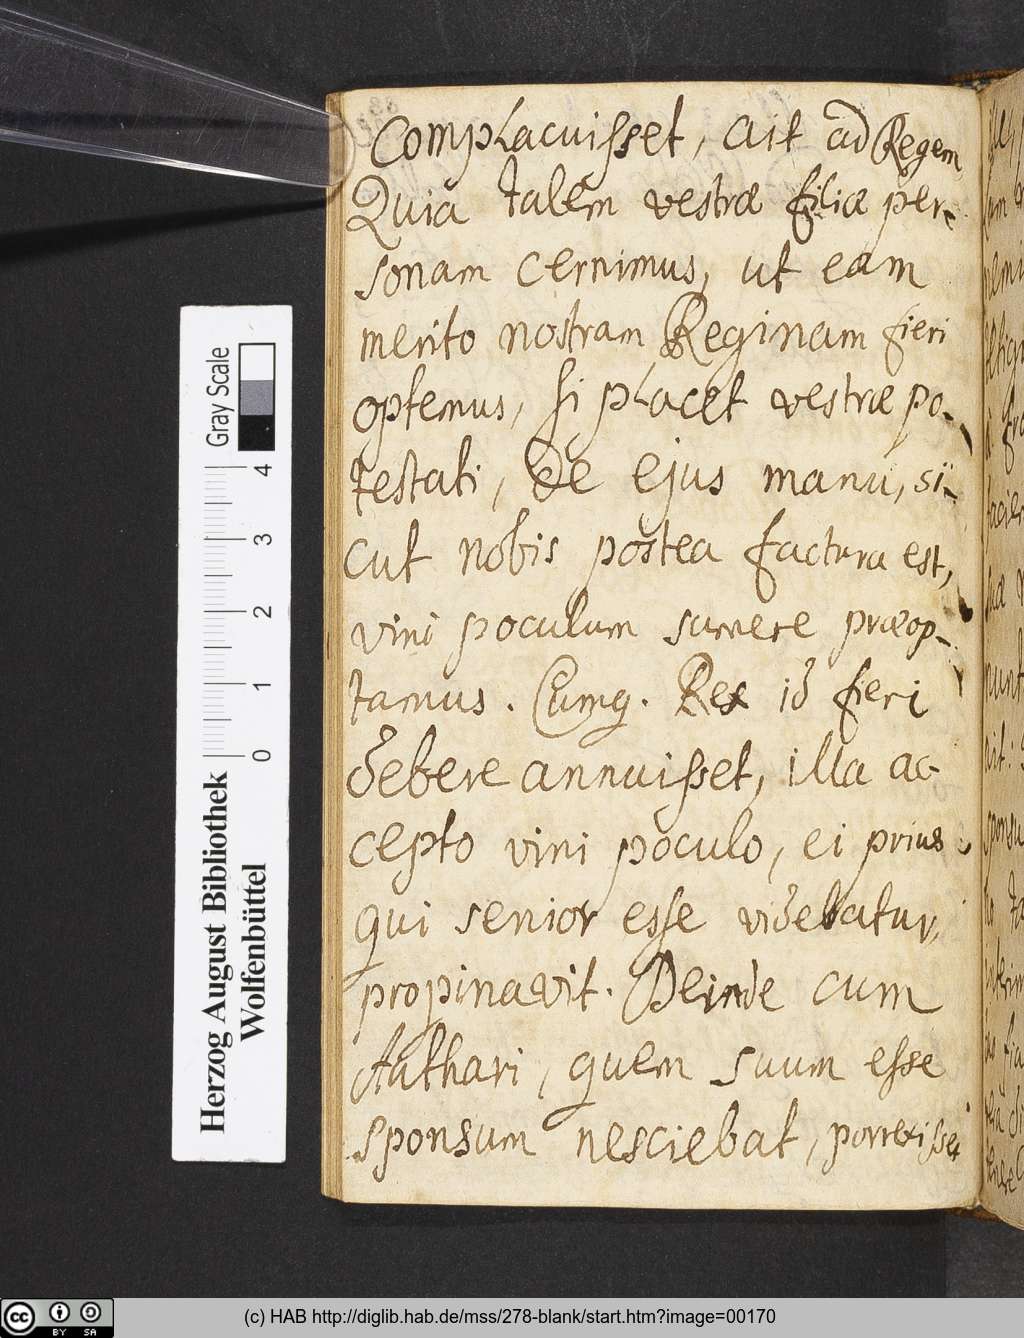 complacuisset, ait ad Regem
Quia talem vestræ filiæ per-
sonam cernimus, ut eam
merito nostram Reginam fieri
optemus, si placet vestræ po-
testati, de ejus manu, si-
cut nobis postea factura est,
vini poculum sumere præop-
tamus. Cumq. Rex id fieri
debere annuisset, illa ac-
cepto vini poculo, ei prius
qui senior esse videbatur,
propinavit. Deinde cum
Authari, quem suum esse
sponsum nesciebat, porretisset
Gray Scale
0 1 2 3 4
Herzog August Bibliothek
Wolfenbüttel
cc BY SA
(c) HAB http://diglib.hab.de/mss/278-blank/start.htm?image=00170